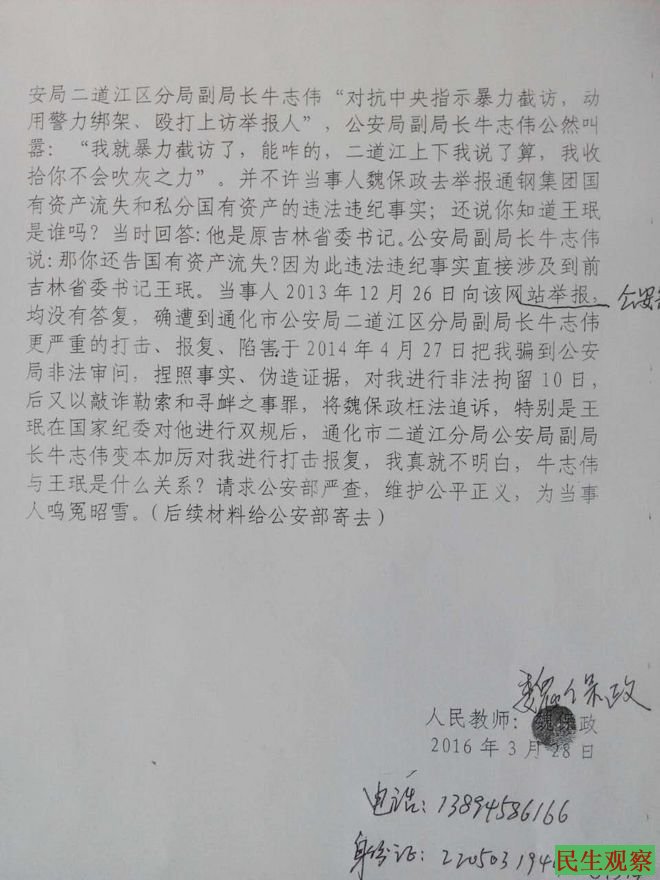 安局二道江区分局副局长牛志伟“对抗中央指示暴力截访、动
用警力绑架、殴打上访举报人”，公安局副局长牛志伟公然叫
嚣：“我就暴力截访了，能咋的，二道江上下我说了算，我收
拾你不会吹灰之力”。并不许当事人魏保政去举报通钢集团国
有资产流失和私分国有资产的违法违纪事实；还说你知道王珉
是谁吗？当时回答：他是原吉林省委书记。公安局副局长牛志伟
说：那你还告国有资产流失？因为此违法违纪事实直接涉及到前
吉林省委书记王珉。当事人2013年12月26日向该网站举报，公安
均没有答复，确遭到通化市公安局二道江区分局副局长牛志伟
更严重的打击、报复、陷害于2014年4月27日把我骗到公安
局非法审问，捏照事实、伪造证据，对我进行非法拘留10日，
后又以敲诈勒索和寻衅之事罪，将魏保政枉法追诉，特别是王
珉在国家纪委对他进行双规后，通化市二道江分局公安局副局
长牛志伟变本加厉对我进行打击报复，我真就不明白，牛志伟
与王珉是什么关系？请求公安部严查，维护公平正义，为当事
人鸣冤昭雪。（后续材料给公安部寄去）
魏保政
人民教师：魏保政
2016年3月28日
电话：13894586166
身份证：220503194
民生观察